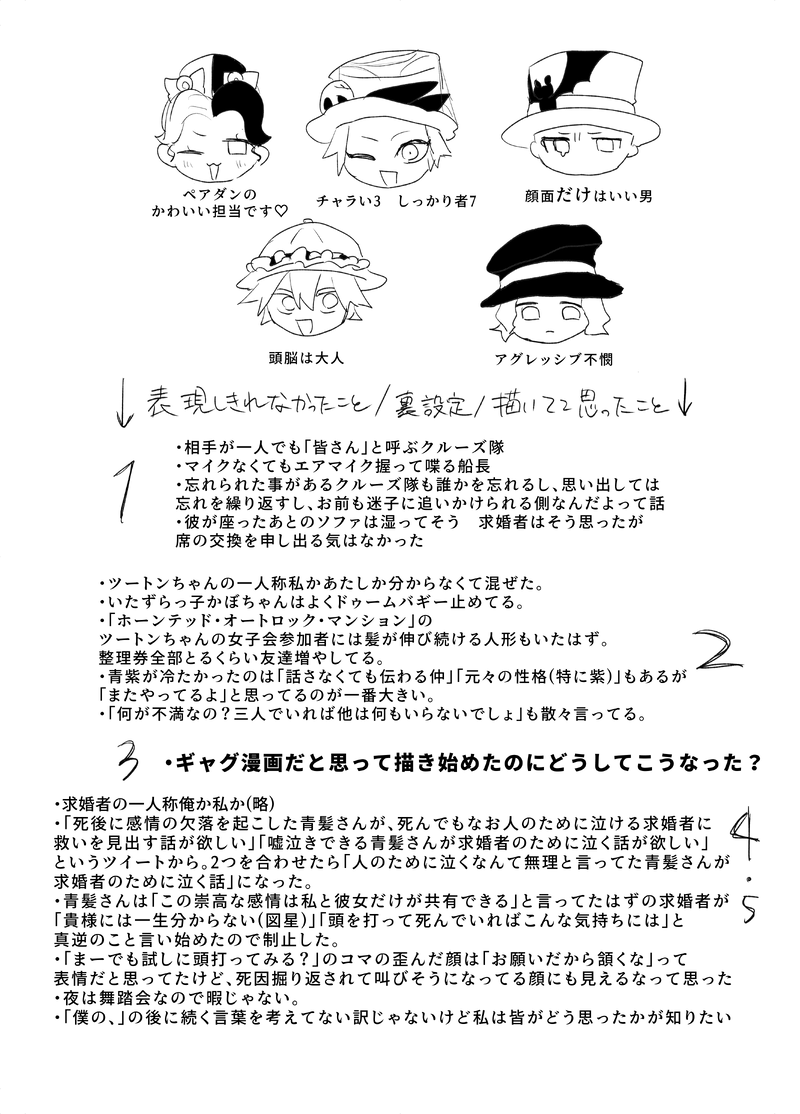 ペアダンの
かわいい担当です♡
チャラい3　しっかり者7
顔面だけはいい男
頭脳は大人
アグレッシブ不憫
↓表現しきれなかったこと/裏設定/描いてて思ったこと↓
1
・相手が一人でも「皆さん」と呼ぶクルーズ隊
・マイクなくてもエアマイク握って喋る船長
・忘れられた事があるクルーズ隊も誰かを忘れるし、思い出しては
忘れを繰り返すし、お前も迷子に追いかけられる側なんだよって話
・彼が座ったあとのソファは湿ってそう　求婚者はそう思ったが
席の交換を申し出る気はなかった
・ツートンちゃんの一人称私かあたしか分からなくて混ぜた。
・いたずらっ子かぼちゃんはよくドゥームバギー止めてる。
・「ホーンテッド・オートロック・マンション」の
ツートンちゃんの女子会参加者には髪が伸び続ける人形もいたはず。
整理券全部とるくらい友達増やしてる。
2
・青紫が冷たかったのは「話さなくても伝わる仲」「元々の性格(特に紫)」もあるが
「またやってるよ」と思ってるのが一番大きい。
・「何が不満なの？三人でいれば他は何もいらないでしょ」も散々言ってる。
3 ・ギャグ漫画だと思って描き始めたのにどうしてこうなった？
・求婚者の一人称俺か私か(略)
・「死後に感情の欠落を起こした青髪さんが、死んでもなお人のために泣ける求婚者に
救いを見出す話が欲しい」「嘘泣きできる青髪さんが求婚者のために泣く話が欲しい」
というツイートから。2つを合わせたら「人のために泣くなんて無理と言ってた青髪さんが
求婚者のために泣く話」になった。
4・5
・青髪さんは「この崇高な感情は私と彼女だけが共有できる」と言ってたはずの求婚者が
「貴様には一生分からない(図星)」「頭を打って死んでいればこんな気持ちには」と
真逆のこと言い始めたので制止した。
・「まーでも試しに頭打ってみる？」のコマの歪んだ顔は「お願いだから頷くな」って
表情だと思ってたけど、死因掘り返されて叫びそうになってる顔にも見えるなって思った
・夜は舞踏会なので暇じゃない。
・「僕の、」の後に続く言葉を考えてない訳じゃないけど私は皆がどう思ったかが知りたい